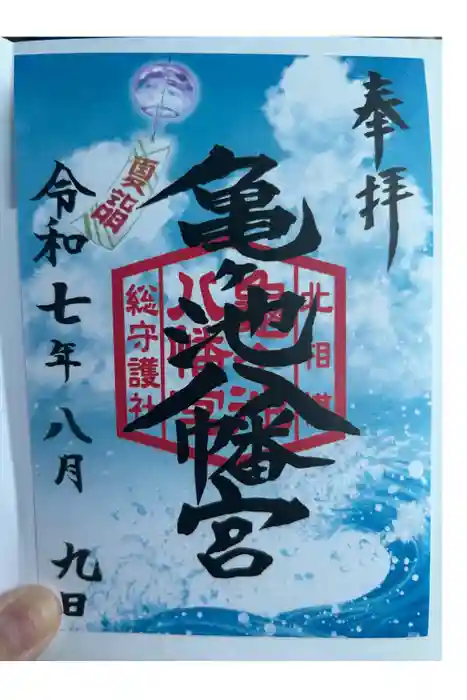 奉拝
夏詣
亀ヶ池八幡宮
北相模
亀ヶ池
八幡宮
総守護社
令和七年八月九日